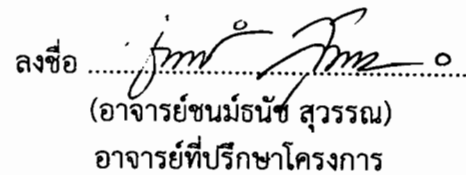 ลงชื่อ ........................................................
(อาจารย์ชนม์ธนัช สุวรรณ)
อาจารย์ที่ปรึกษาโครงการ